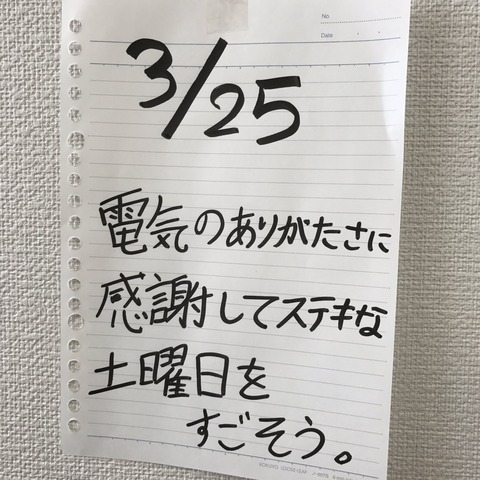 No.
Date
3/25
電気のありがたさに
感謝してステキな
土曜日を
すごそう。